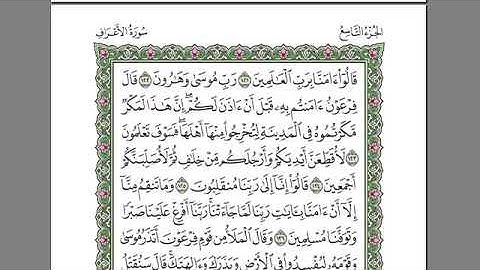 الجزء التاسع
سورة الأعراف
قَالُوٓا۟ ءَامَنَّا بِرَبِّ ٱلْعَٰلَمِينَ ١٢١ رَبِّ مُوسَىٰ وَهَٰرُونَ ١٢٢ قَالَ
فِرْعَوْنُ ءَامَنتُم بِهِۦ قَبْلَ أَنْ ءَاذَنَ لَكُمْ إِنَّ هَٰذَا لَمَكْرٌ
مَّكَرْتُمُوهُ فِى ٱلْمَدِينَةِ لِتُخْرِجُوا۟ مِنْهَآ أَهْلَهَا فَسَوْفَ تَعْلَمُونَ
١٢٣ لَأُقَطِّعَنَّ أَيْدِيَكُمْ وَأَرْجُلَكُم مِّنْ خِلَٰفٍ ثُمَّ لَأُصَلِّبَنَّكُمْ
أَجْمَعِينَ ١٢٤ قَالُوٓا۟ إِنَّآ إِلَىٰ رَبِّنَا مُنقَلِبُونَ ١٢٥ وَمَا تَنقِمُ مِنَّآ
إِلَّآ أَنْ ءَامَنَّا بِـَٔايَٰتِ رَبِّنَا لَمَّا جَآءَتْنَا رَبَّنَآ أَفْرِغْ عَلَيْنَا صَبْرًا
وَتَوَفَّنَا مُسْلِمِينَ ١٢٦ وَقَالَ ٱلْمَلَأُ مِن قَوْمِ فِرْعَوْنَ أَتَذَرُ مُوسَىٰ
وَقَوْمَهُۥ لِيُفْسِدُوا۟ فِى ٱلْأَرْضِ وَيَذَرَكَ وَءَالِهَتَكَ قَالَ سَنُقَتِّلُ